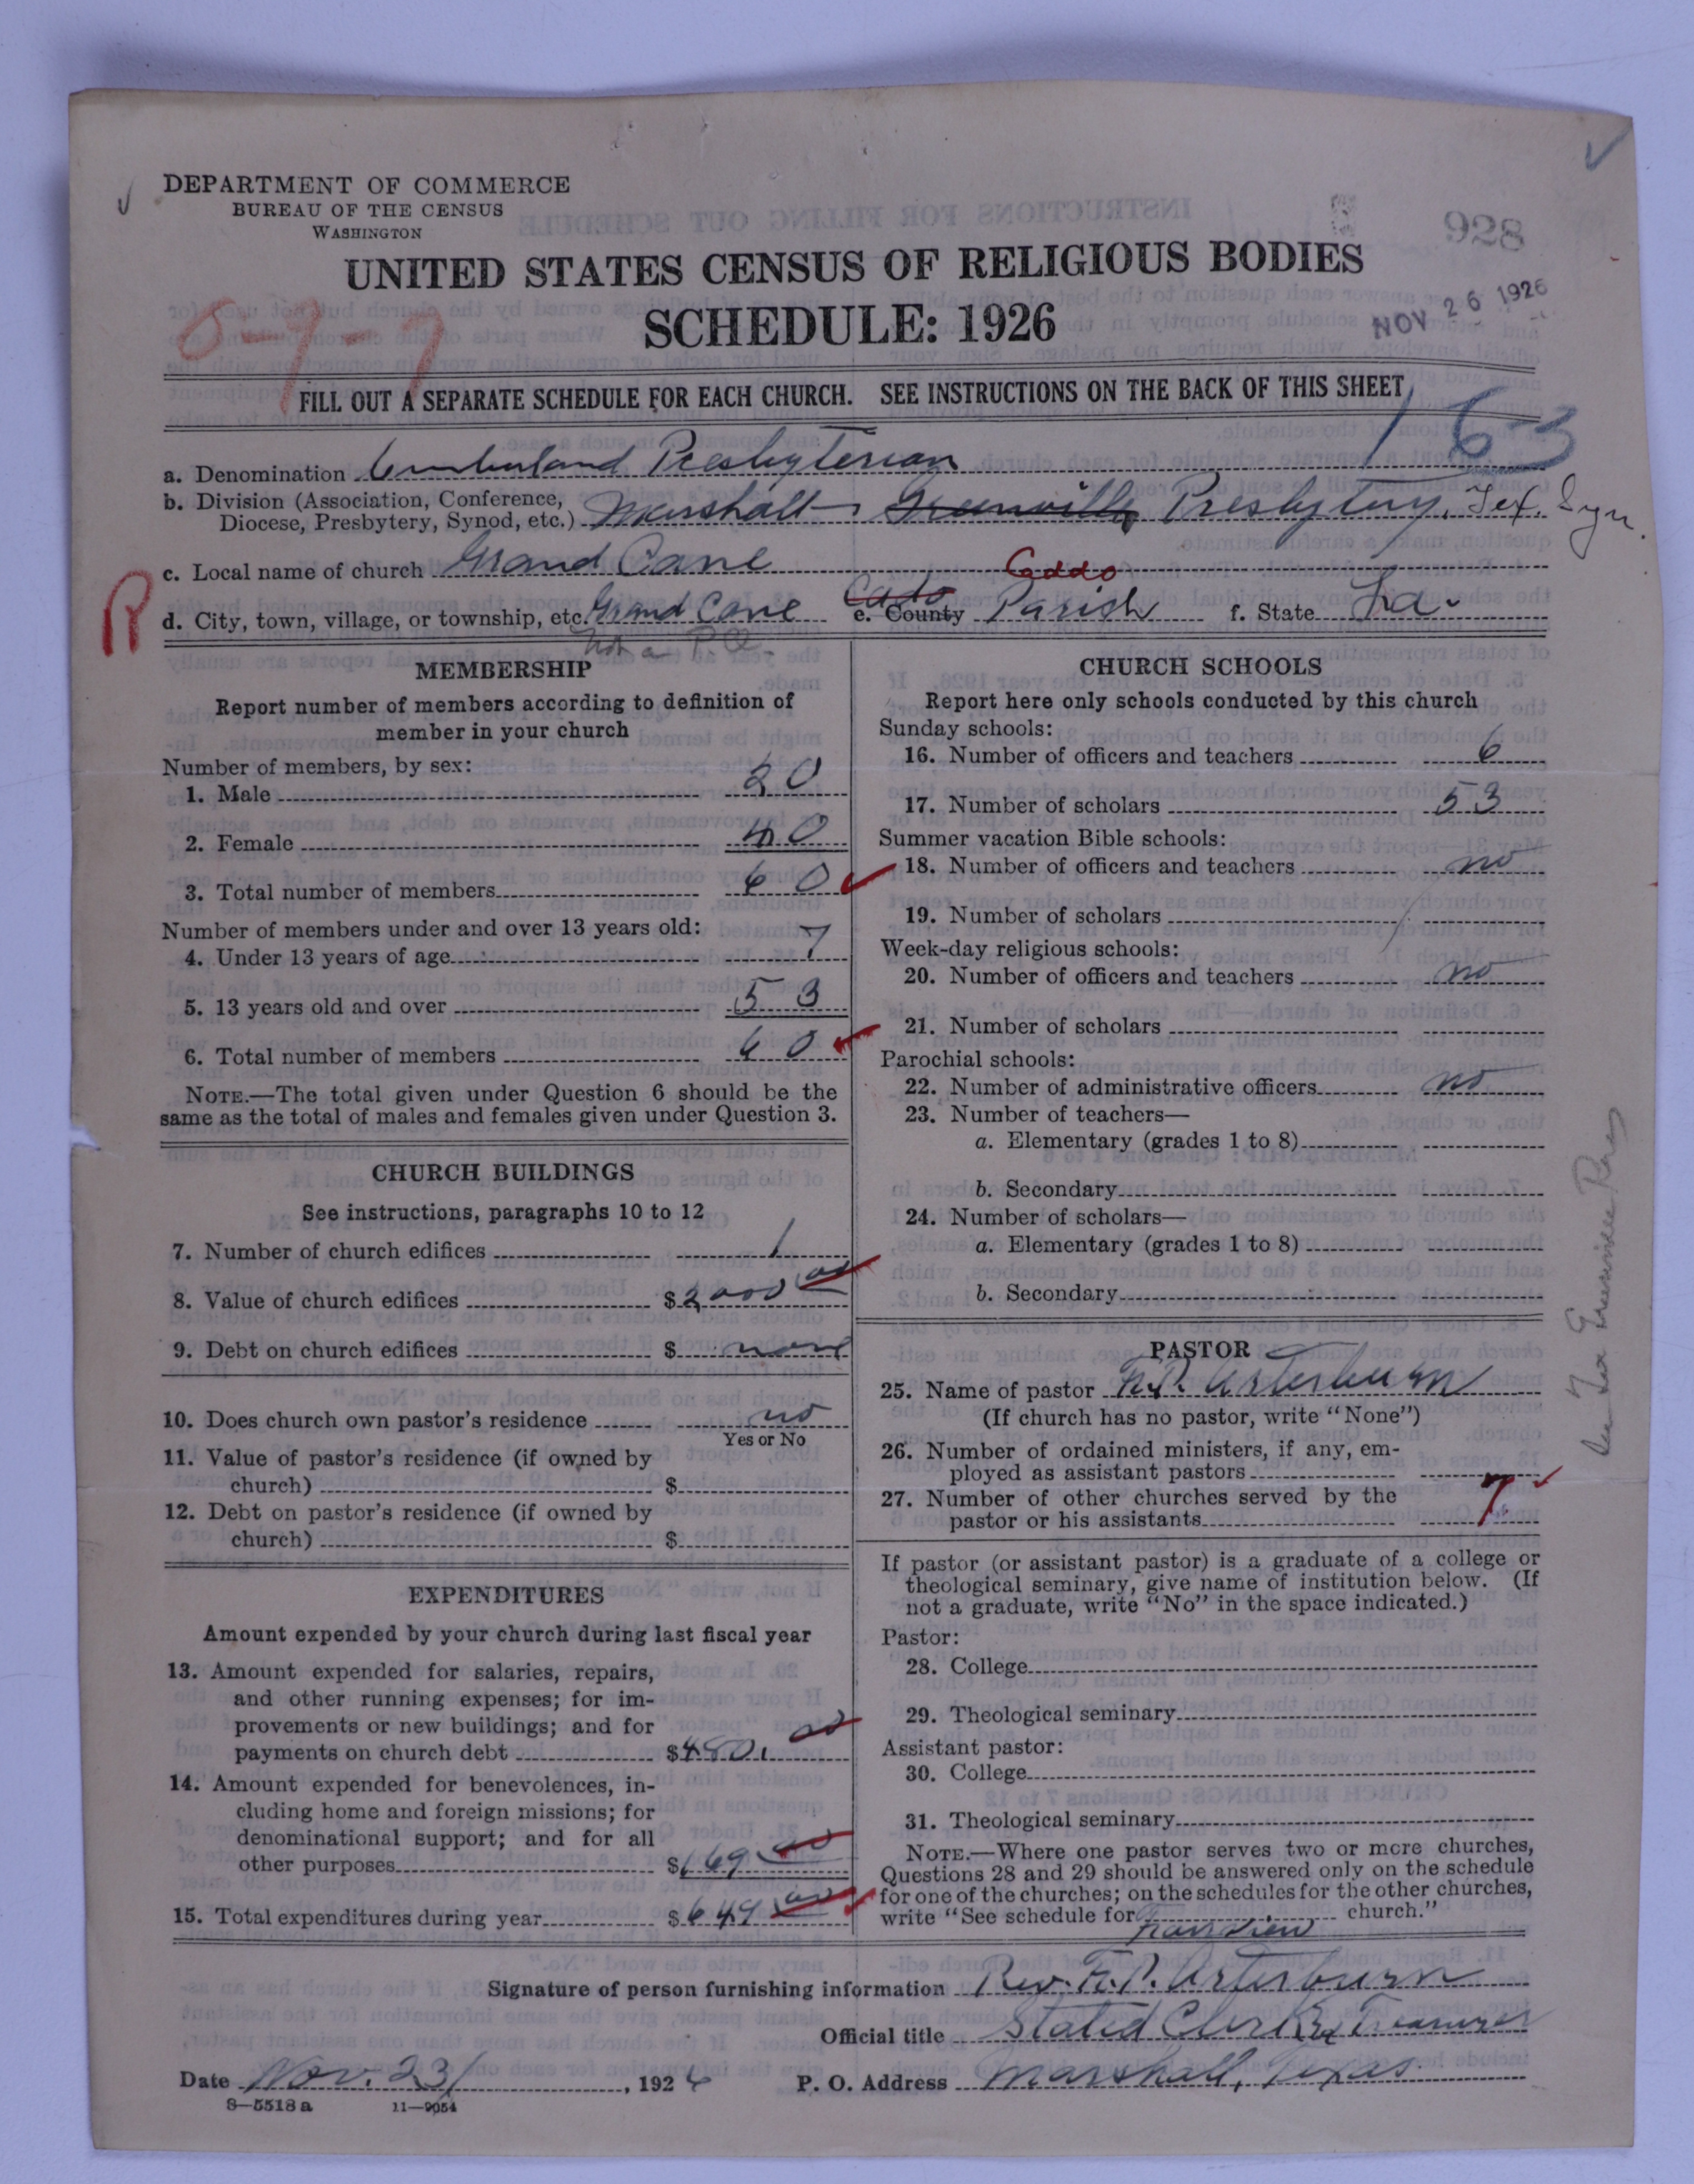 DEPARTMENT OF COMMERCE
BUREAU OF THE CENSUS
WASHINGTON
928
UNITED STATES CENSUS OF RELIGIOUS BODIES
SCHEDULE: 1926
NOV 26 1926
0-9-7
FILL OUT A SEPARATE SCHEDULE FOR EACH CHURCH. SEE INSTRUCTIONS ON THE BACK OF THIS SHEET
163
a. Denomination Cumberland Presbyterian
b. Division (Association, Conference, Diocese, Presbytery, Synod, etc.) Marshall Greenville Presbytery, Tex. Syn.
c. Local name of church Grand Cane
Caddo
R
d. City, town, village, or township, etc. Grand Cane Cado e. County Parish f. State La.
Not a P.O.
MEMBERSHIP
Report number of members according to definition of
member in your church
Number of members, by sex:
1. Male 20
2. Female 40
3. Total number of members 60
Number of members under and over 13 years old:
4. Under 13 years of age 7
5. 13 years old and over 53
6. Total number of members 60
NOTE.—The total given under Question 6 should be the
same as the total of males and females given under Question 3.
CHURCH BUILDINGS
See instructions, paragraphs 10 to 12
7. Number of church edifices 1
8. Value of church edifices $2000 00
9. Debt on church edifices $ none
10. Does church own pastor's residence no
Yes or No
11. Value of pastor's residence (if owned by
church) $
12. Debt on pastor's residence (if owned by
church) $
EXPENDITURES
Amount expended by your church during last fiscal year
13. Amount expended for salaries, repairs,
and other running expenses; for im-
provements or new buildings; and for
payments on church debt $480. 00
14. Amount expended for benevolences, in-
cluding home and foreign missions; for
denominational support; and for all
other purposes $169 00
15. Total expenditures during year $649 00
CHURCH SCHOOLS
Report here only schools conducted by this church
Sunday schools:
16. Number of officers and teachers 6
17. Number of scholars 53
Summer vacation Bible schools:
18. Number of officers and teachers no
19. Number of scholars
Week-day religious schools:
20. Number of officers and teachers no
21. Number of scholars
Parochial schools:
22. Number of administrative officers no
23. Number of teachers—
a. Elementary (grades 1 to 8)
b. Secondary
24. Number of scholars—
a. Elementary (grades 1 to 8)
b. Secondary
PASTOR
25. Name of pastor F.P. Arterburn
(If church has no pastor, write "None")
26. Number of ordained ministers, if any, em-
ployed as assistant pastors
27. Number of other churches served by the
pastor or his assistants 7
If pastor (or assistant pastor) is a graduate of a college or
theological seminary, give name of institution below. (If
not a graduate, write "No" in the space indicated.)
Pastor:
28. College
29. Theological seminary
Assistant pastor:
30. College
31. Theological seminary
NOTE.—Where one pastor serves two or more churches,
Questions 28 and 29 should be answered only on the schedule
for one of the churches; on the schedules for the other churches,
write "See schedule for church."
Fairview
Signature of person furnishing information Rev. F.P. Arterburn
Official title Stated Clerk & Treasurer
Date Nov. 23/, 1926 P. O. Address Marshall, Texas.
8—5518 a 11—9054